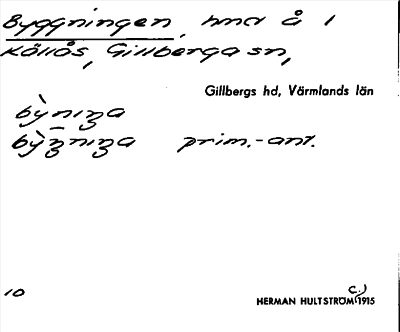 Byggningen, hmd å 1
Källås, Gillberga sn,
Gillbergs hd, Värmlands län
prim.-ant.
10
C.)
HERMAN HULTSTRÖM 1915